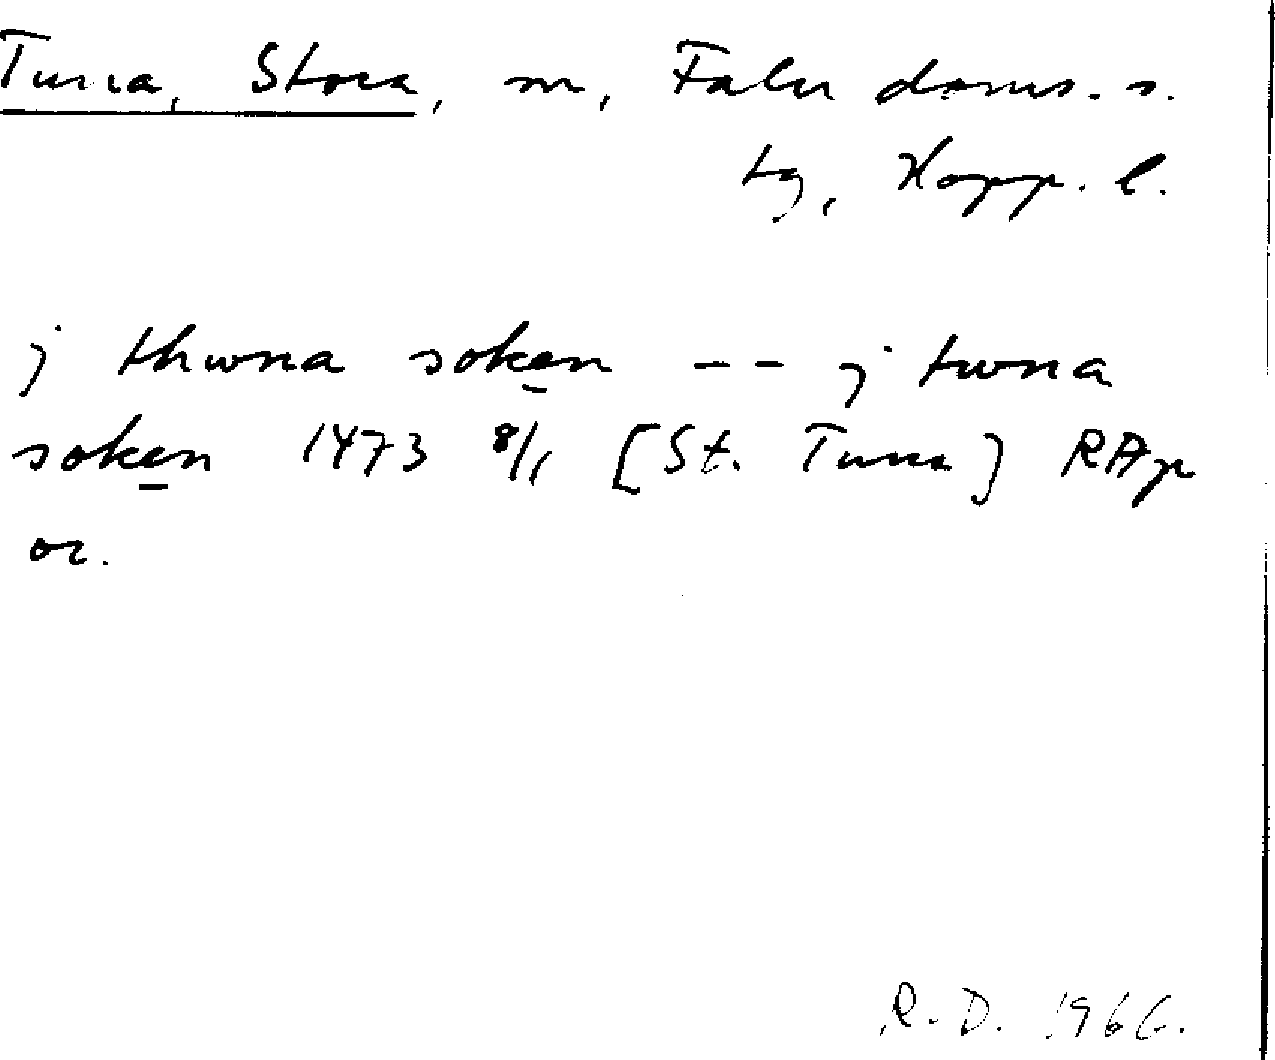 Tuna, Stora, sn, Falu doms. s.
tg, Kopp. l.
j thwna soken -- j twna
soken 1473 8/1 [St. Tuna] RAp
or.
R. D. 1966.